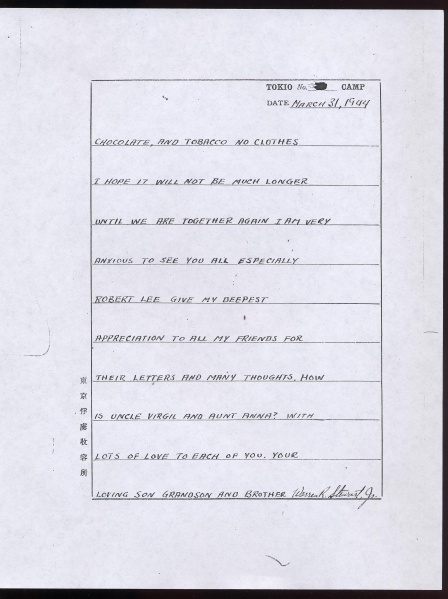 TOKIO No. CAMP
DATE MARCH 31, 1944
CHOCOLATE, AND TOBACCO NO CLOTHES
I HOPE IT WILL NOT BE MUCH LONGER
UNTIL WE ARE TOGETHER AGAIN I AM VERY
ANXIOUS TO SEE YOU ALL ESPECIALLY
ROBERT LEE GIVE MY DEEPEST
APPRECIATION TO ALL MY FRIENDS FOR
THEIR LETTERS AND MANY THOUGHTS, HOW
IS UNCLE VIRGIL AND AUNT ANNA? WITH
LOTS OF LOVE TO EACH OF YOU. YOUR
LOVING SON GRANDSON AND BROTHER Warren R. Stewart, Jr.
東京俘虜收容所